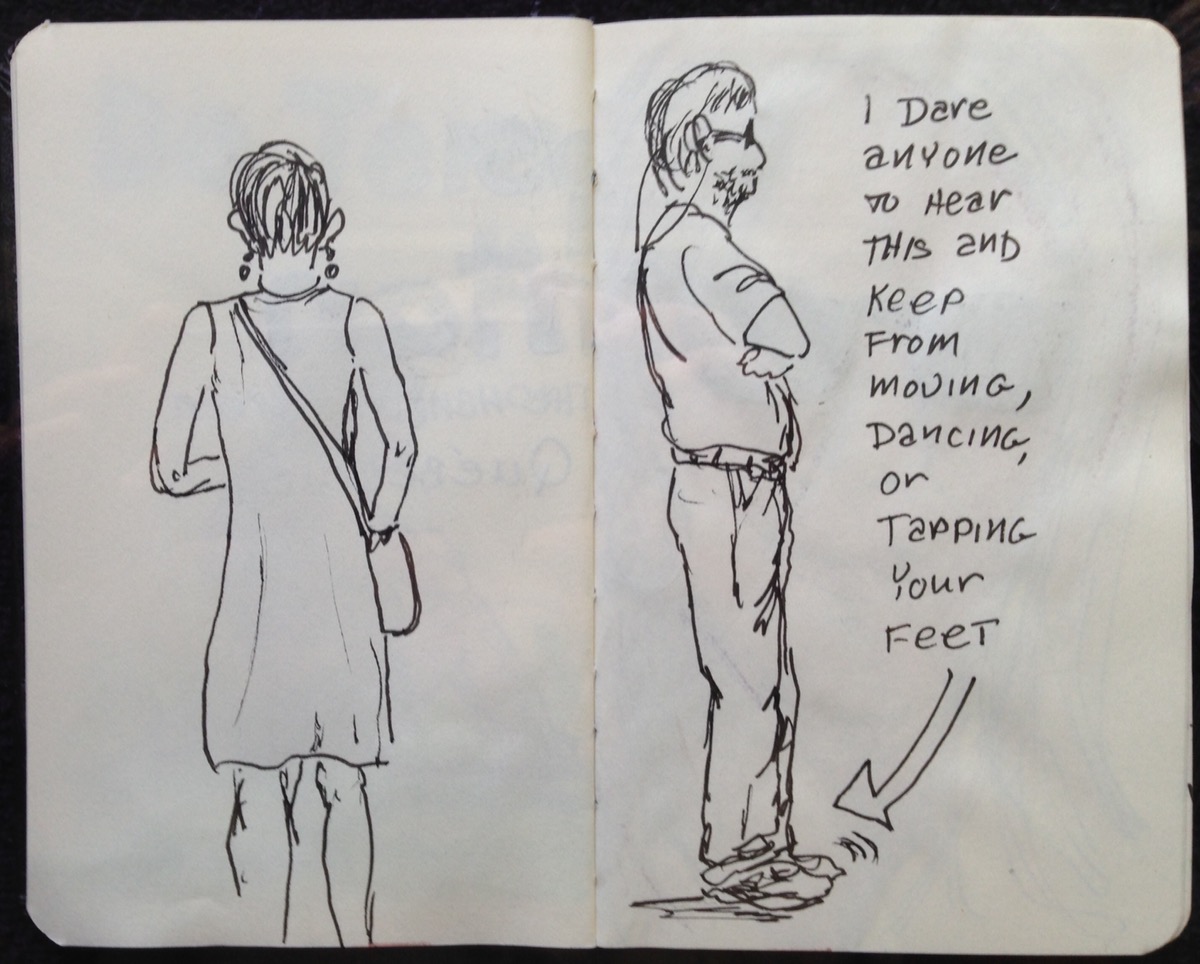 I Dare
anyone
to Hear
THIS and
Keep
From
moving,
Dancing,
or
Tapping
Your
Feet